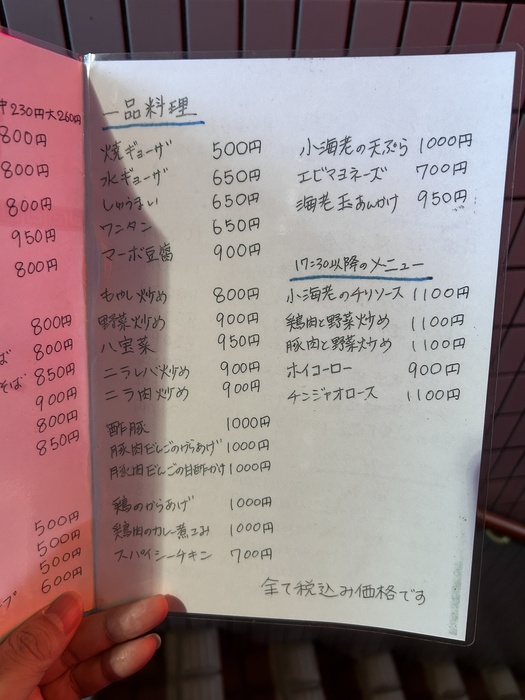 中230円大260円
800円
800円
800円
950円
800円
800円
ば 800円
そば 850円
900円
800円
850円
500円
500円
500円
プ 600円
一品料理
焼ギョーザ 500円
水ギョーザ 650円
しゅうまい 650円
ワンタン 650円
マーボ豆腐 900円
もやし炒め 800円
野菜炒め 900円
八宝菜 950円
ニラレバ炒め 900円
ニラ肉炒め 900円
酢豚 1000円
豚肉だんごのからあげ 1000円
豚肉だんごの甘酢かけ 1000円
鶏のからあげ 1000円
鶏肉のカレー煮こみ 1000円
スパイシーチキン 700円
小海老の天ぷら 1000円
エビマヨネーズ 700円
海老玉あんかけ 950円
17:30以降のメニュー
小海老のチリソース 1100円
鶏肉と野菜炒め 1100円
豚肉と野菜炒め 1100円
ホイコーロー 900円
チンジャオロース 1100円
全て税込み価格です